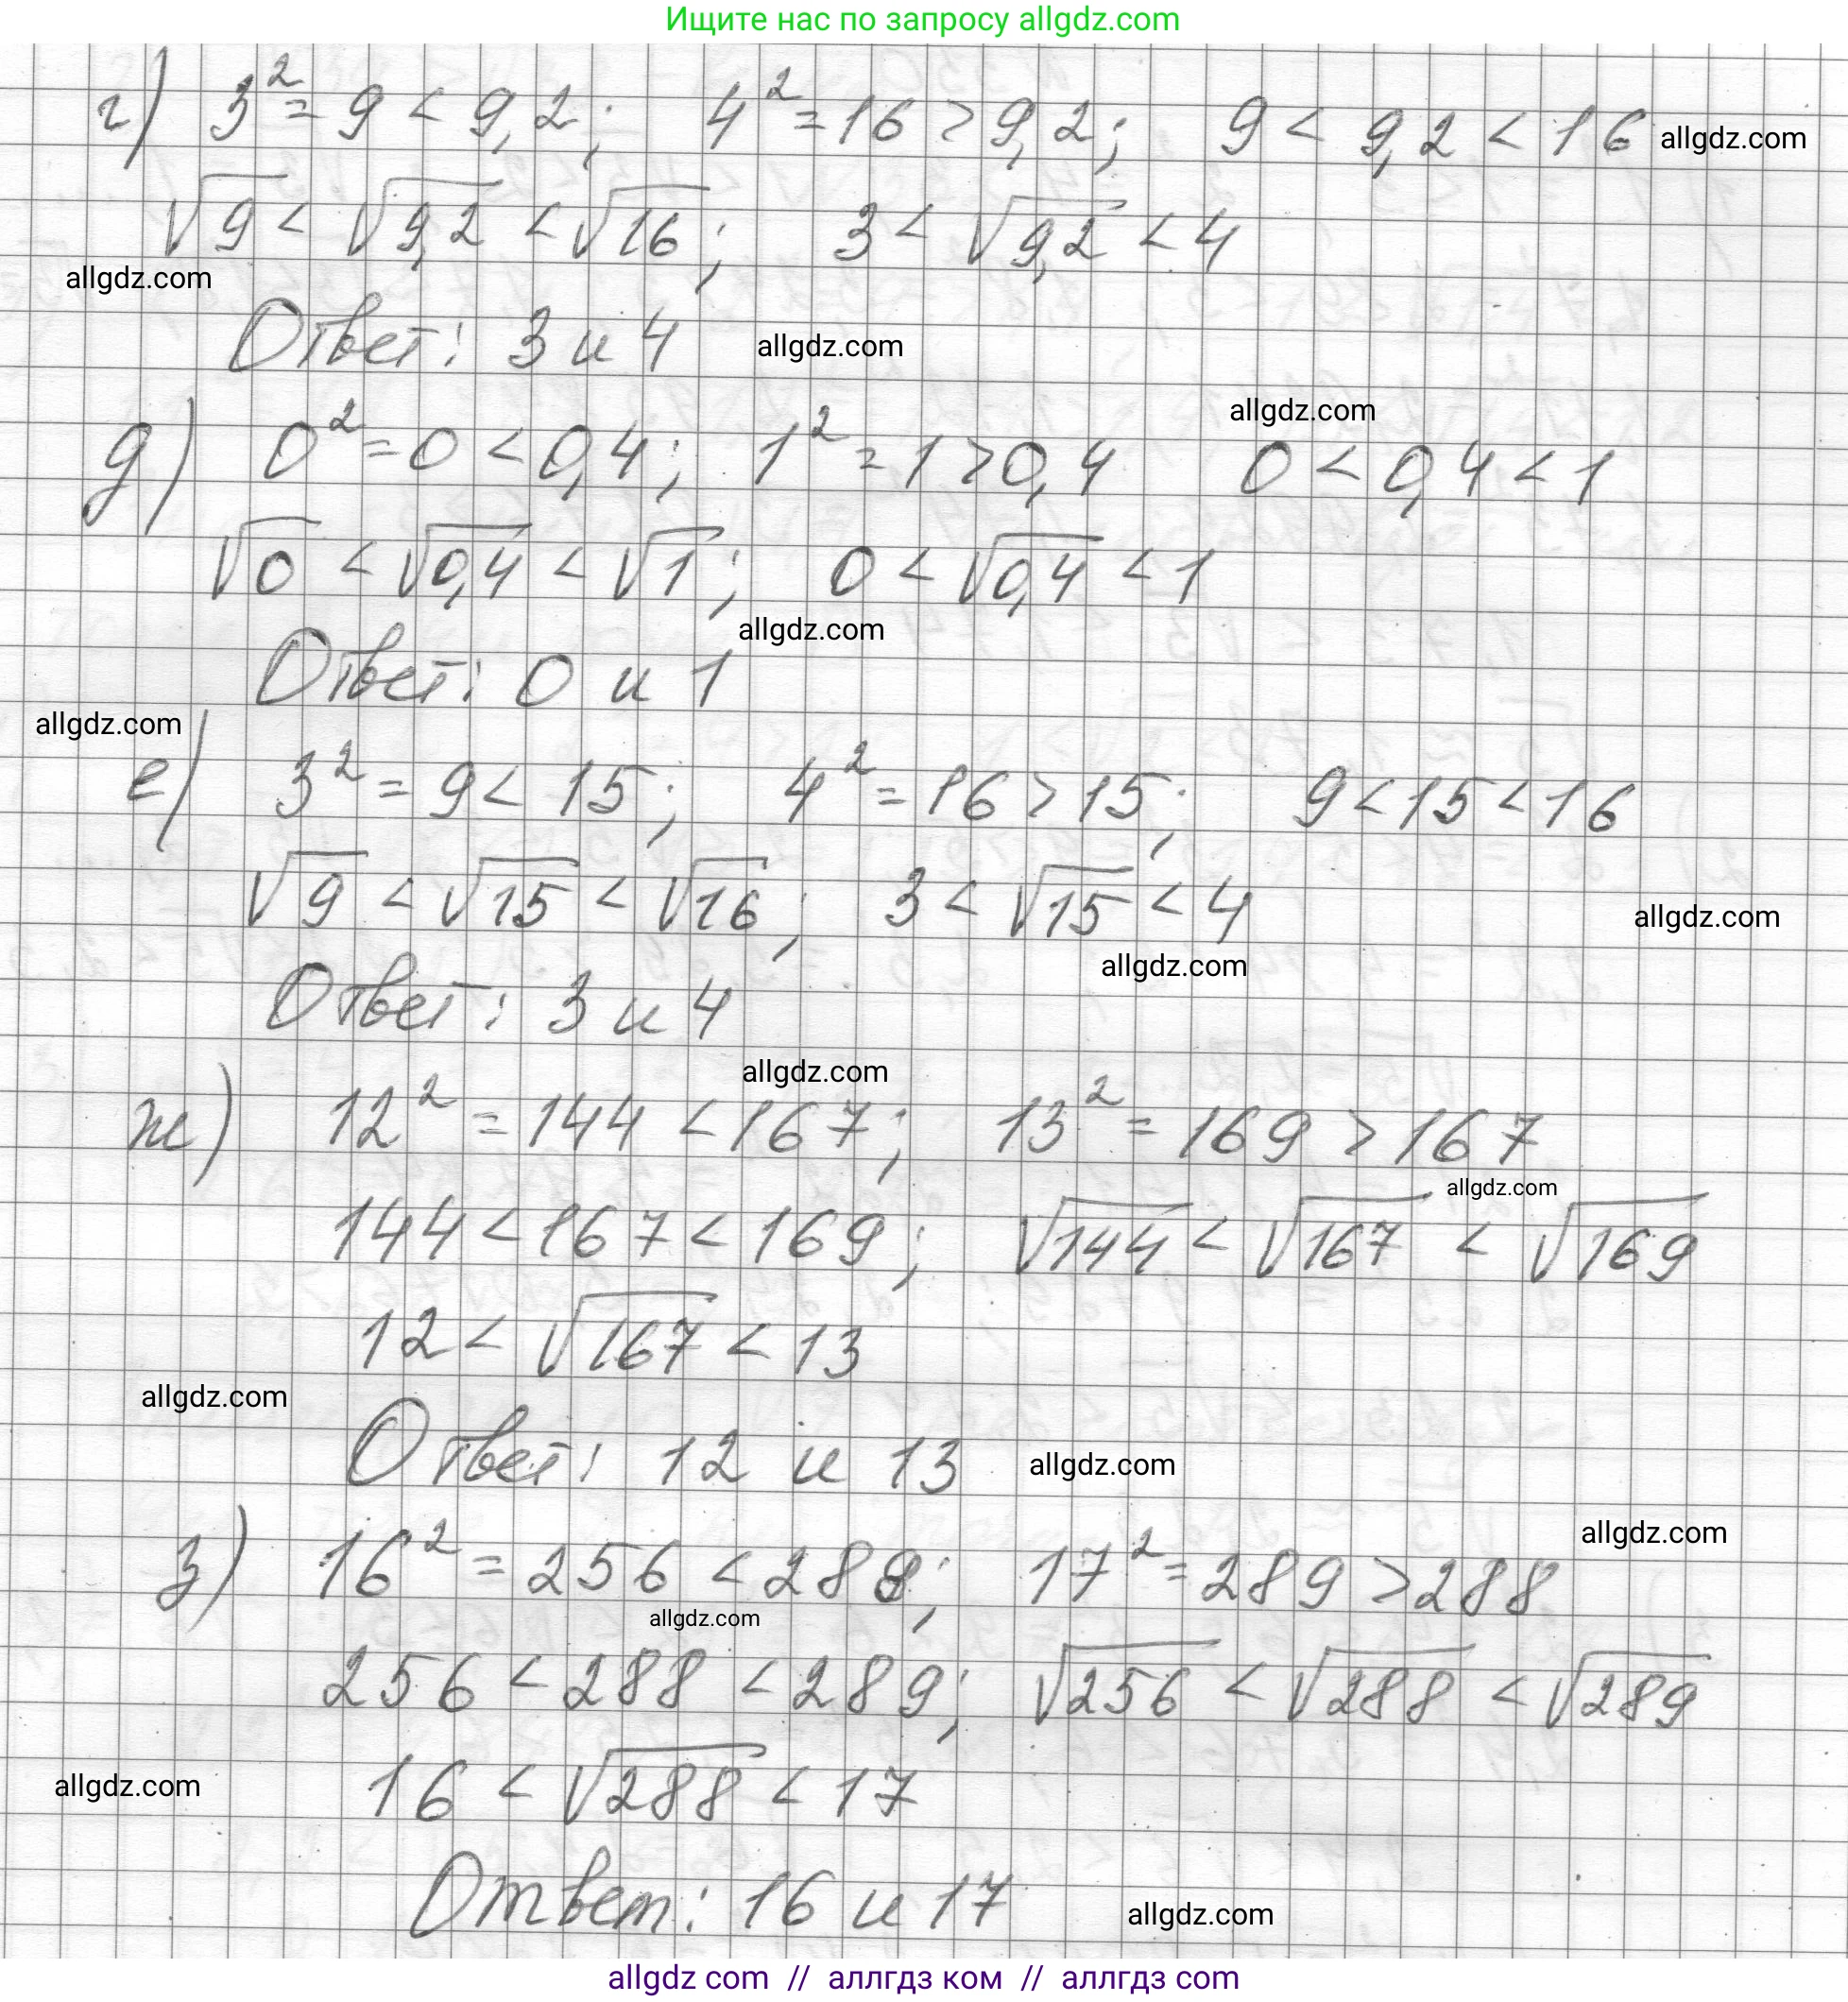 Ищите нас по запросу allgdz.com
г) 3² = 9 < 9,2; 4² = 16 > 9,2; 9 < 9,2 < 16 allgdz.com
√9 < √9,2 < √16; 3 < √9,2 < 4
allgdz.com
Ответ: 3 и 4 allgdz.com
allgdz.com
д) 0² = 0 < 0,4; 1² = 1 > 0,4 0 < 0,4 < 1
√0 < √0,4 < √1; 0 < √0,4 < 1
allgdz.com
Ответ: 0 и 1
allgdz.com
е) 3² = 9 < 15; 4² = 16 > 15; 9 < 15 < 16
√9 < √15 < √16; 3 < √15 < 4 allgdz.com
allgdz.com
Ответ: 3 и 4
allgdz.com
ж) 12² = 144 < 167; 13² = 169 > 167
allgdz.com
144 < 167 < 169; √144 < √167 < √169
12 < √167 < 13
allgdz.com
Ответ: 12 и 13 allgdz.com
allgdz.com
з) 16² = 256 < 288; 17² = 289 > 288
allgdz.com
256 < 288 < 289; √256 < √288 < √289
allgdz.com 16 < √288 < 17
Ответ: 16 и 17 allgdz.com
allgdz com // аллгдз ком // аллгдз com